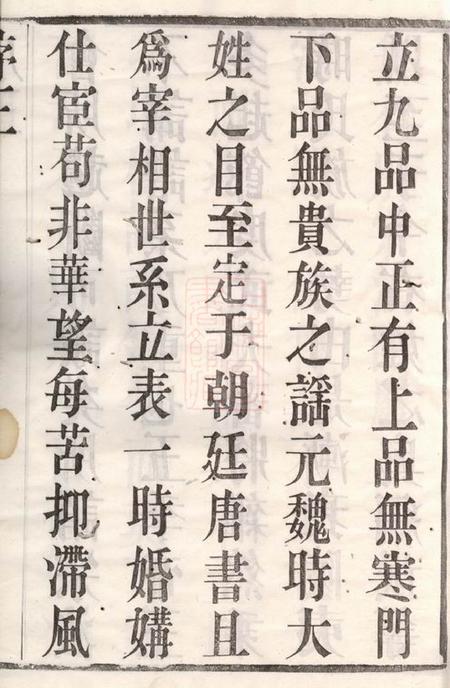 立九品中正有上品無寒門
下品無貴族之謡元魏時大
姓之目至定于朝廷唐書且
為宰相世系立表一時婚媾
仕宦苟非華望每苦抑滯風